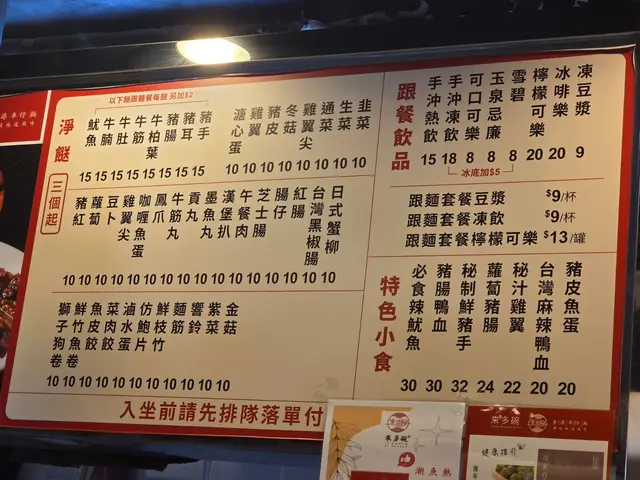 以下餸跟麵餐每餸另加$2
淨餸
三個起
魷魚 牛腩 牛肚 牛筋 牛柏葉 豬腸 豬手 豬耳
15 15 15 15 15 15 15 15
溏心蛋 雞翼 豬皮 冬菇 雞翼尖 通菜 生菜 韭菜
10 10 10 10 10 10 10 10
豬紅 蘿蔔 豆卜 雞翼尖 咖喱魚蛋 鳳爪 牛筋丸 貢丸 墨魚丸 漢堡扒 午餐肉 芝士腸 腸仔 紅腸 台灣黑椒腸 日式蟹柳
10 10 10 10 10 10 10 10 10 10 10 10 10 10 10 10
獅子狗卷 鮮竹魚卷 魚皮餃 菜肉餃 滷水蛋 仿鮑片 鮮枝竹 麵筋 響鈴 紫菜 金菇
10 10 10 10 10 10 10 10 10 10 10
入坐前請先排隊落單付
跟餐飲品
手沖熱飲 手沖凍飲 可口可樂 玉泉忌廉 雪碧 檸檬可樂 冰啡樂 凍豆漿
15 18 8 8 8 20 20 9
冰底加$5
跟麵套餐豆漿 $9/杯
跟麵套餐凍飲 $9/杯
跟麵套餐檸檬可樂 $13/罐
特色小食
必食辣魷魚 豬腸鴨血 秘制鮮豬手 蘿蔔豬腸 秘汁雞翼 台灣麻辣鴨血 豬皮魚蛋
30 30 32 24 22 20 20
來多碗
潮魚煞
來多碗
健康推介